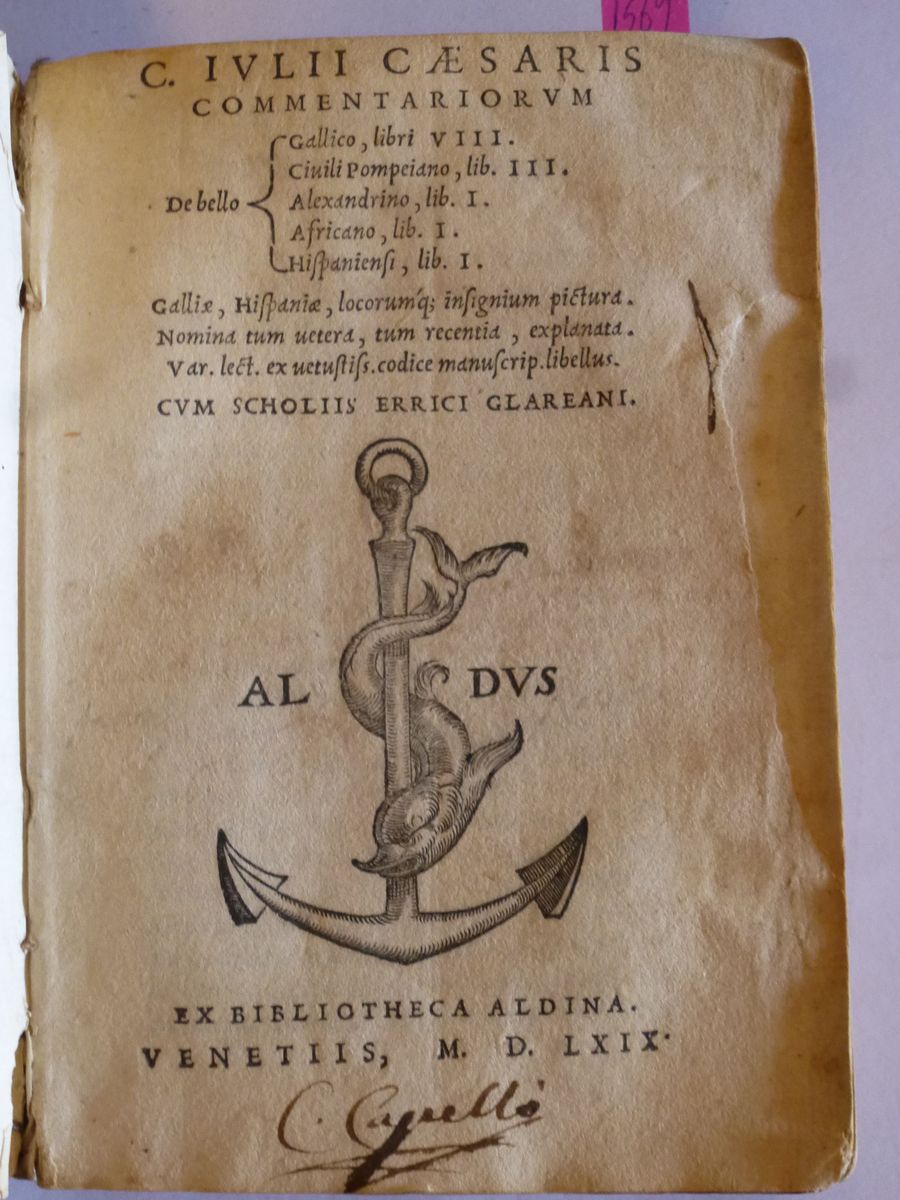 1569
C. IVLII CÆSARIS
COMMENTARIORVM
De bello
Gallico, libri VIII.
Ciuili Pompeiano, lib. III.
Alexandrino, lib. I.
Africano, lib. I.
Hiſpanienſi, lib. I.
Galliæ, Hiſpaniæ, locorumq́; inſignium pictura.
Nomina tum uetera, tum recentia, explanata.
Var. lect. ex uetuſtiſs. codice manuſcrip. libellus.
CVM SCHOLIIS ERRICI GLAREANI.
ALDVS
EX BIBLIOTHECA ALDINA.
VENETIIS, M. D. LXIX.
C. Capello